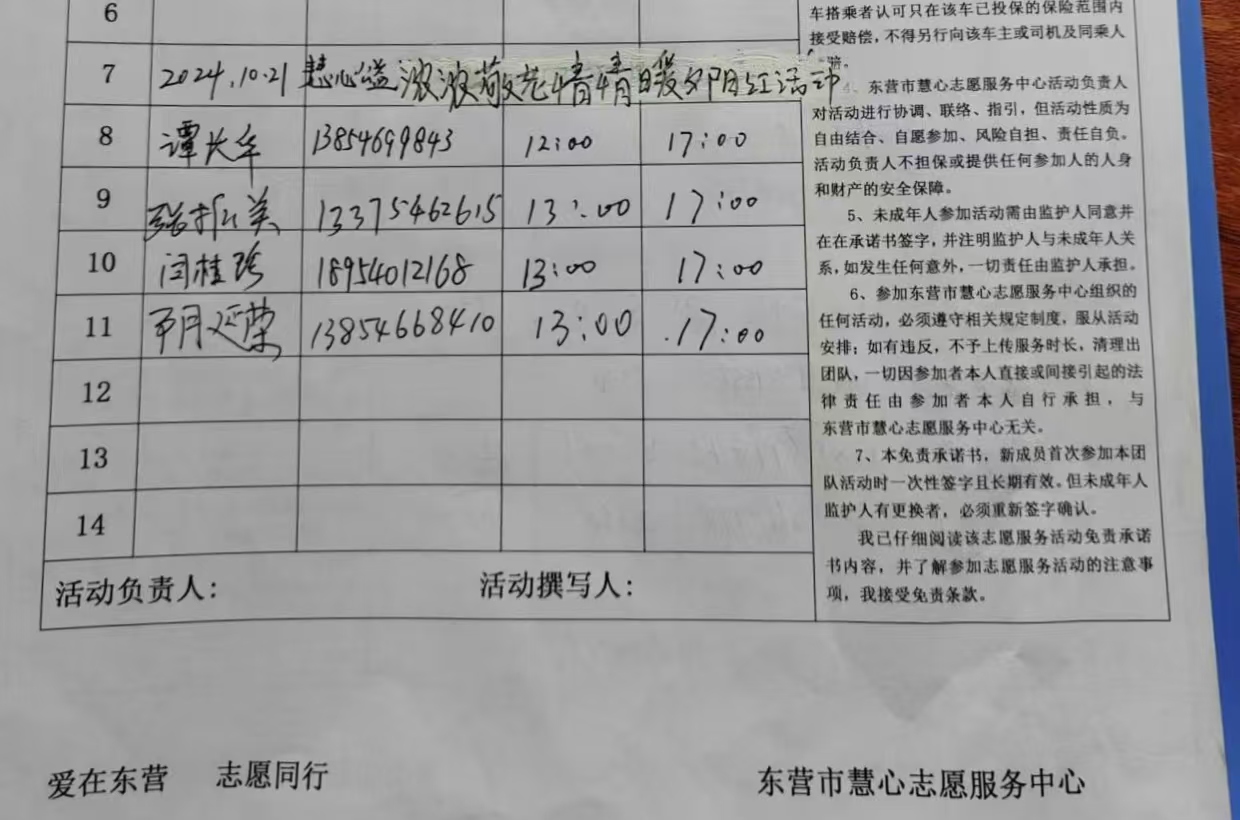 6
7 2024.10.21 慧心益浓浓敬老情情暖夕阳红活动
8 谭长华 13854699843 12:00 17:00
9 张振美 13375462615 13:00 17:00
10 闫桂珍 18954012168 13:00 17:00
11 延荣 13854668410 13:00 17:00
12
13
14
活动负责人: 活动撰写人:
车搭乘者认可只在该车已投保的保险范围内
接受赔偿,不得另行向该车主或司机及同乘人
赔。
4、东营市慧心志愿服务中心活动负责人
对活动进行协调、联络、指引,但活动性质为
自由结合、自愿参加、风险自担、责任自负。
活动负责人不担保或提供任何参加人的人身
和财产的安全保障。
5、未成年人参加活动需由监护人同意并
在在承诺书签字,并注明监护人与未成年人关
系,如发生任何意外,一切责任由监护人承担。
6、参加东营市慧心志愿服务中心组织的
任何活动,必须遵守相关规定制度,服从活动
安排;如有违反,不予上传服务时长,清理出
团队,一切因参加者本人直接或间接引起的法
律责任由参加者本人自行承担,与
东营市慧心志愿服务中心无关。
7、本免责承诺书,新成员首次参加本团
队活动时一次性签字且长期有效。但未成年人
监护人有更换者,必须重新签字确认。
我已仔细阅读该志愿服务活动免责承诺
书内容,并了解参加志愿服务活动的注意事
项,我接受免责条款。
爱在东营 志愿同行 东营市慧心志愿服务中心